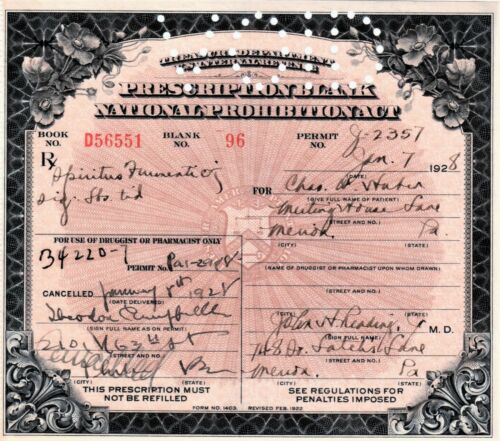 TREASURY DEPARTMENT
U.S. INTERNAL REVENUE
PRESCRIPTION BLANK
NATIONAL PROHIBITION ACT
BOOK NO. D56551 BLANK NO. 96 PERMIT NO. J-2357
Jan. 7 1928
Rx
Spiritus Frumenti
Sig.
FOR Chas.
(GIVE FULL NAME OF PATIENT)
Meeting House Lane
(STREET AND NO.)
Merion Pa
(CITY) (STATE)
FOR USE OF DRUGGIST OR PHARMACIST ONLY
34220-7
PERMIT NO.
(NAME OF DRUGGIST OR PHARMACIST UPON WHOM DRAWN)
(STREET AND NO.)
(CITY) (STATE)
CANCELLED January 8th 1928
(DATE DELIVERED)
Theodore Campbell
(SIGN FULL NAME AS ON PERMIT)
63rd St
(STREET AND NO.)
(CITY) (STATE)
John H. M.D.
(SIGN FULL NAME)
Lane
(STREET AND NO.)
Merion Pa
(CITY) (STATE)
THIS PRESCRIPTION MUST NOT BE REFILLED
SEE REGULATIONS FOR PENALTIES IMPOSED
FORM NO. 1403. REVISED FEB. 1922